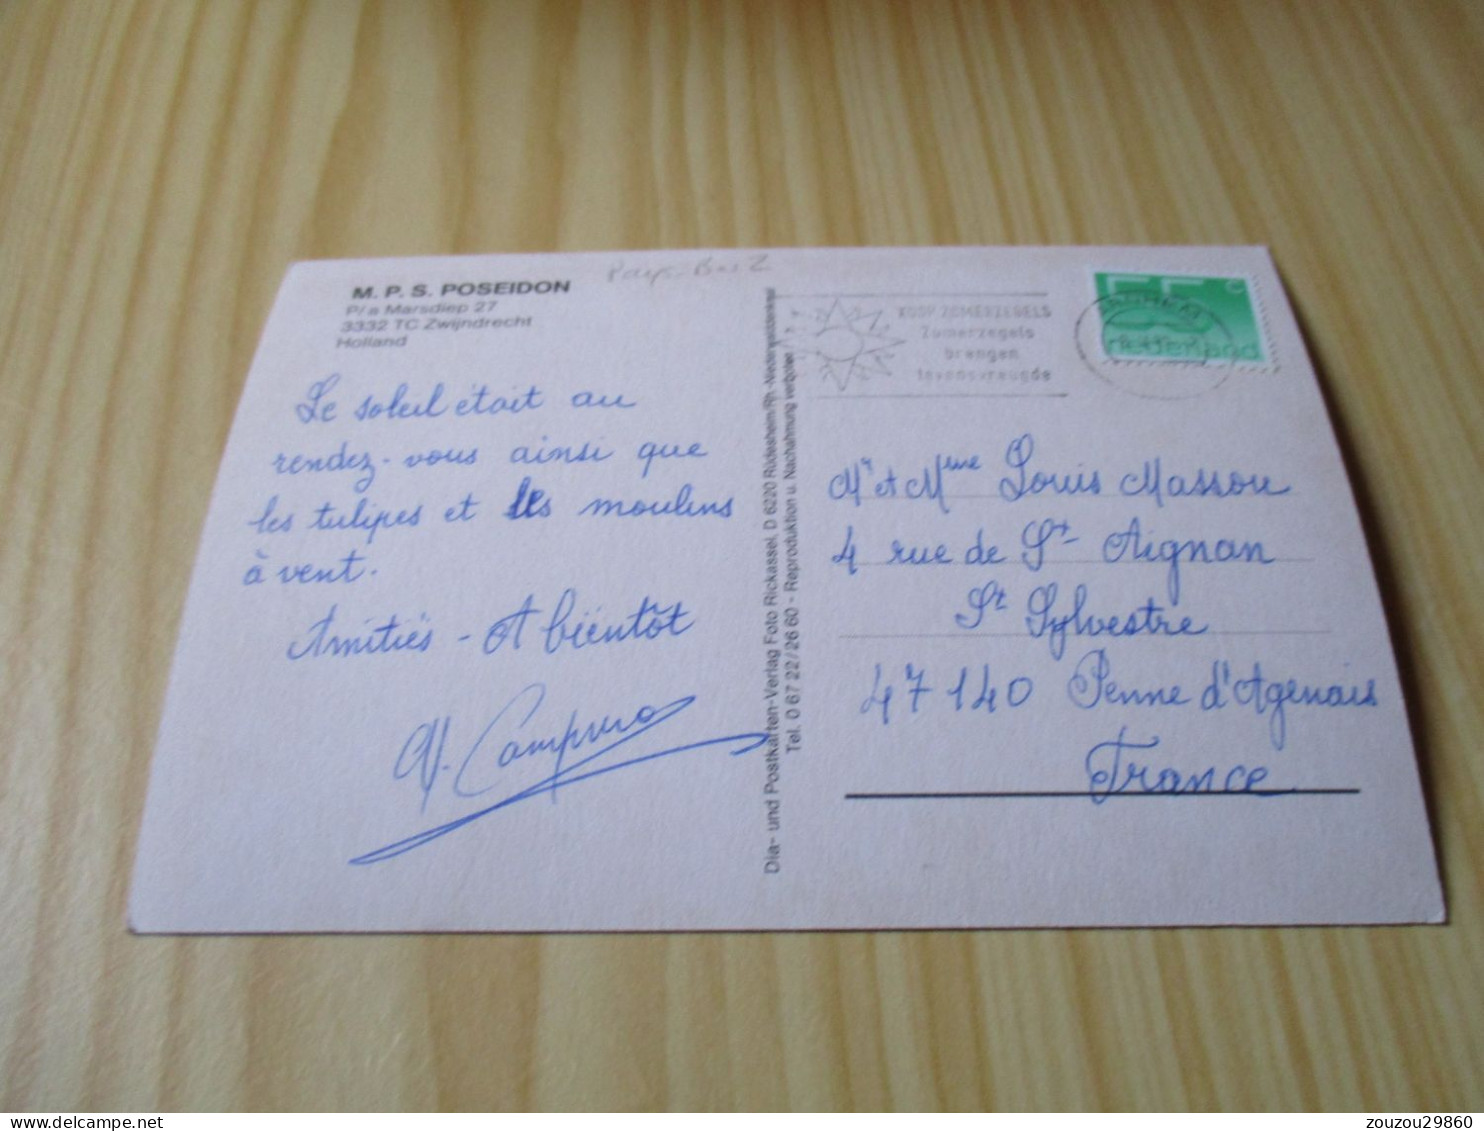 Pays-Bas 2
M. P. S. POSEIDON
P/a Marsdiep 27
3332 TC Zwijndrecht
Holland
Le soleil était au
rendez-vous ainsi que
les tulipes et les moulins
à vent.
Amitiés - A bientôt
Dia- und Postkarten-Verlag Foto Rickassel, D 6220 Rüdesheim/Rh.-Niederwalddenkmal
Tel. 0 67 22 / 26 60 - Reproduktion u. Nachahmung verboten
KOOP ZOMERZEGELS
Zomerzegels
brengen
levensvreugde
55 c
nederland
Mr et Mme Louis Massou
4 rue de St Aignan
St Sylvestre
47140 Penne d'Agenais
France
zouzou29860